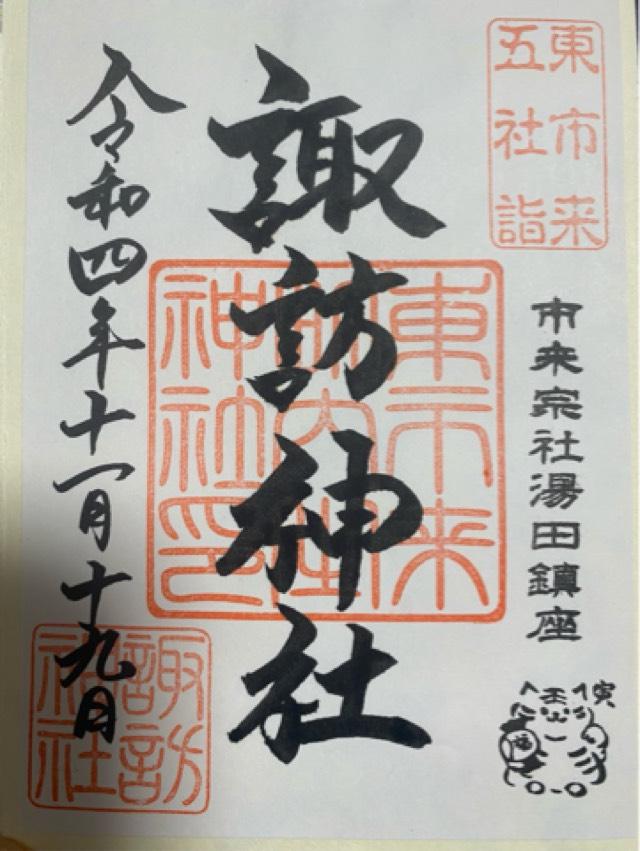 東市来
五社詣
市来宗社湯田鎮座
諏訪神社
東市来
神社印
令和四年十一月十九日
諏訪
神社
寅